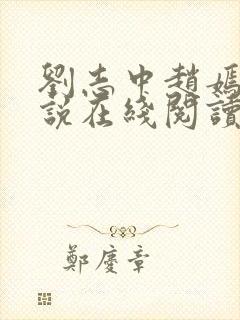 劉志中趙媽
說在綫閱讀
鄭慶章